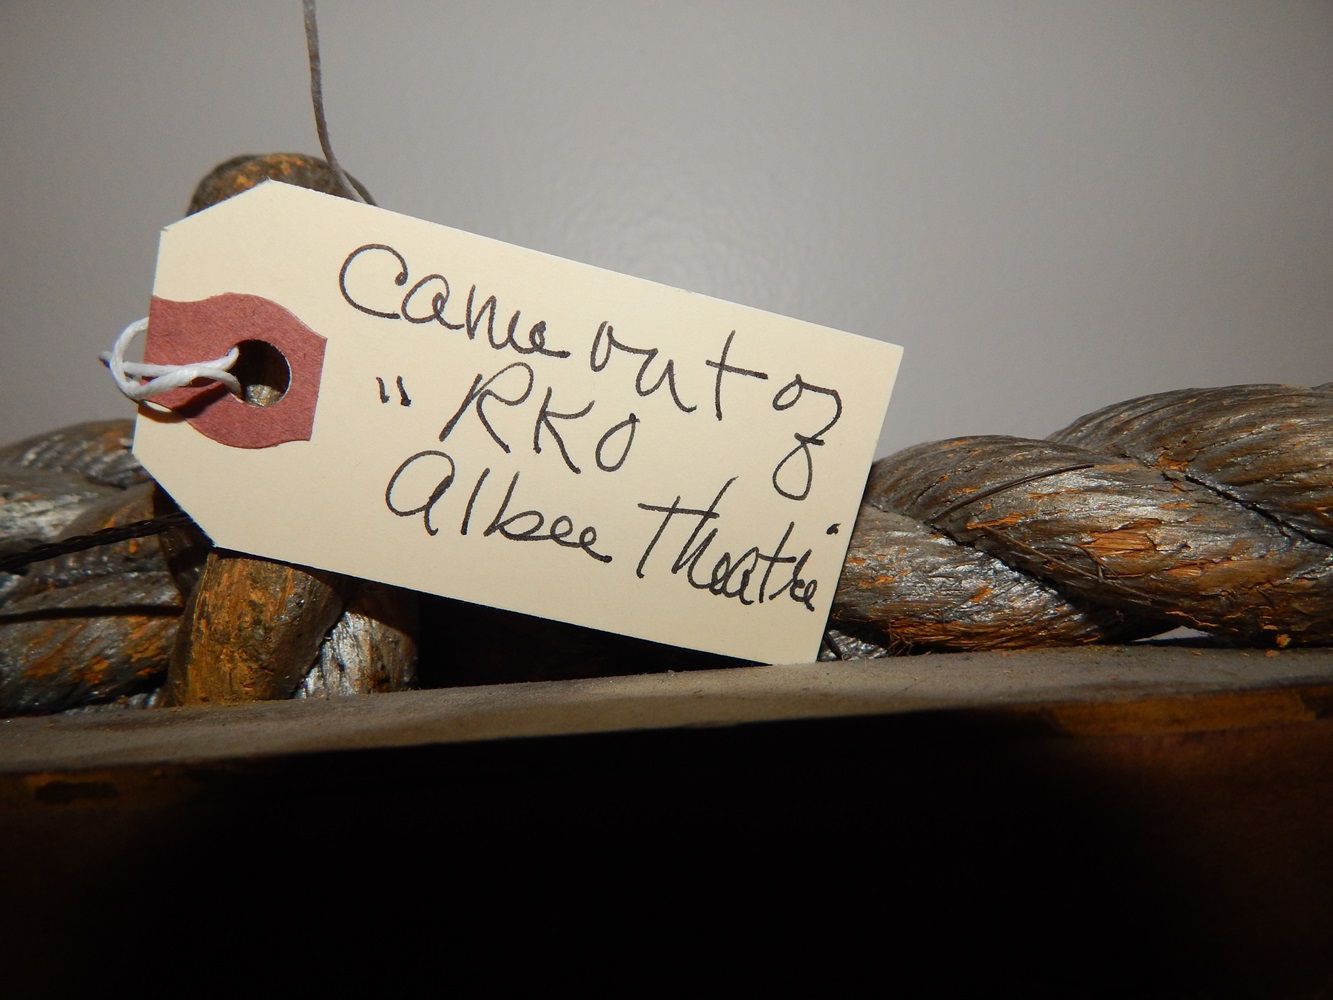 Came out of
"RKO
Albee Theatre"